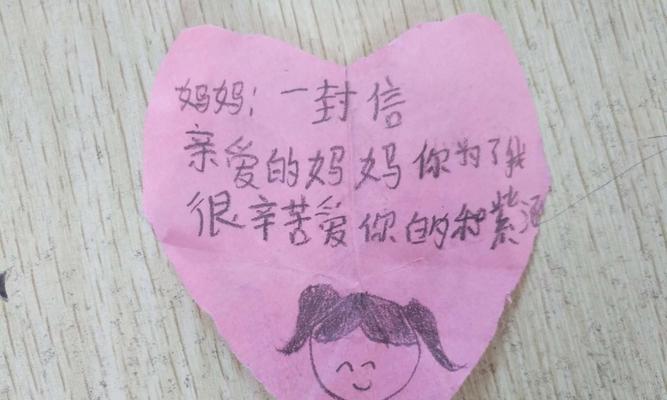 妈妈：一封信
亲爱的妈妈你为了我
很辛苦爱你的紫涵